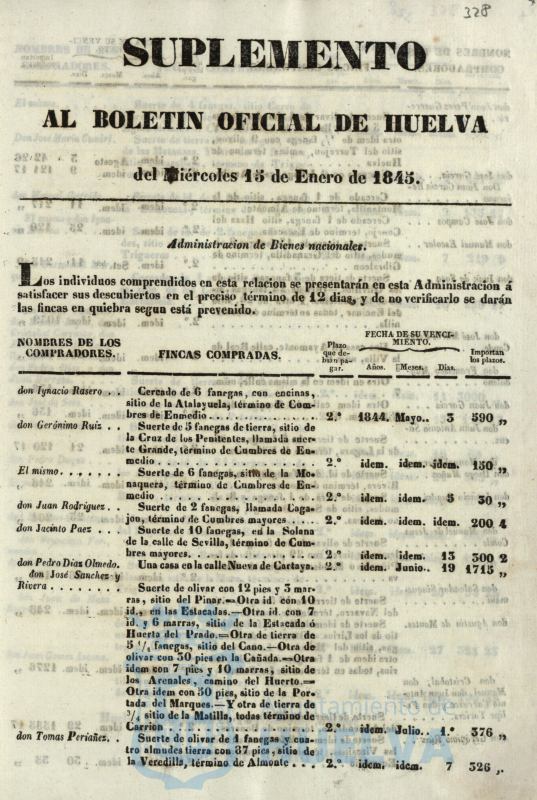 328
SUPLEMENTO
AL BOLETIN OFICIAL DE HUELVA
del Miércoles 15 de Enero de 1845.
Administracion de Bienes nacionales.
Los individuos comprendidos en esta relacion se presentarán en esta Administracion á
satisfacer sus descubiertos en el preciso término de 12 dias, y de no verificarlo se darán
las fincas en quiebra segun está prevenido.
NOMBRES DE LOS COMPRADORES. FINCAS COMPRADAS. Plazo que debian pagar. FECHA DE SU VENCIMIENTO. Años. Meses. Dias. Importan los plazos.
don Ignacio Rasero . . Cercado de 6 fanegas, con encinas,
sitio de la Atalayuela, término de Cum-
bres de Enmedio . . . 2.º 1844. Mayo.. 3 590 „
don Gerónimo Ruiz . . Suerte de 5 fanegas de tierra, sitio de
la Cruz de los Penitentes, llamada suer-
te Grande, término de Cumbres de En-
medio . . . 2.º idem. idem. idem. 150 „
El mismo . . . Suerte de 6 fanegas, sitio de la Mo-
naquera, término de Cumbres de En-
medio . . . 2.º idem. idem. 5 50 „
don Juan Rodriguez . . Suerte de 2 fanegas, llamada Caga-
jon, término de Cumbres mayores . . . 2.º idem. idem. idem. 200 4
don Jacinto Paez . . . Suerte de 10 fanegas, en la Solana
de la calle de Sevilla, término de Cum-
bres mayores . . . 2.º idem. idem. 13 300 2
don Pedro Diaz Olmedo. Una casa en la calle Nueva de Cartaya. 2.º idem. Junio.. 19 1715 „
don José Sanchez y
Rivera . . . Suerte de olivar con 12 pies y 3 mar-
ras, sitio del Pinar.=Otra id. con 10
id., en las Estacadas.—Otra id. con 7
id. y 6 marras, sitio de la Estacada ó
Huerta del Prado.=Otra de tierra de
5 1/4 fanegas, sitio del Cano.—Otra de
olivar con 30 pies en la Cañada.=Otra
idem con 7 pies y 10 marras, sitio de
los Arenales, camino del Huerto.=
Otra idem con 50 pies, sitio de la Por-
tada del Marques.=Y otra de tierra de
3/4 sitio de la Matilla, todas término de
Carrion . . . 2.º idem. Julio.. 1.º 376 „
don Tomas Periañez. . Suerte de olivar de 1 fanegas y cua-
tro almudes tierra con 37 pies, sitio de
la Veredilla, término de Almonte . . . 2.º idem. idem. 7 326 „
Ayuntamiento de
HUELVA